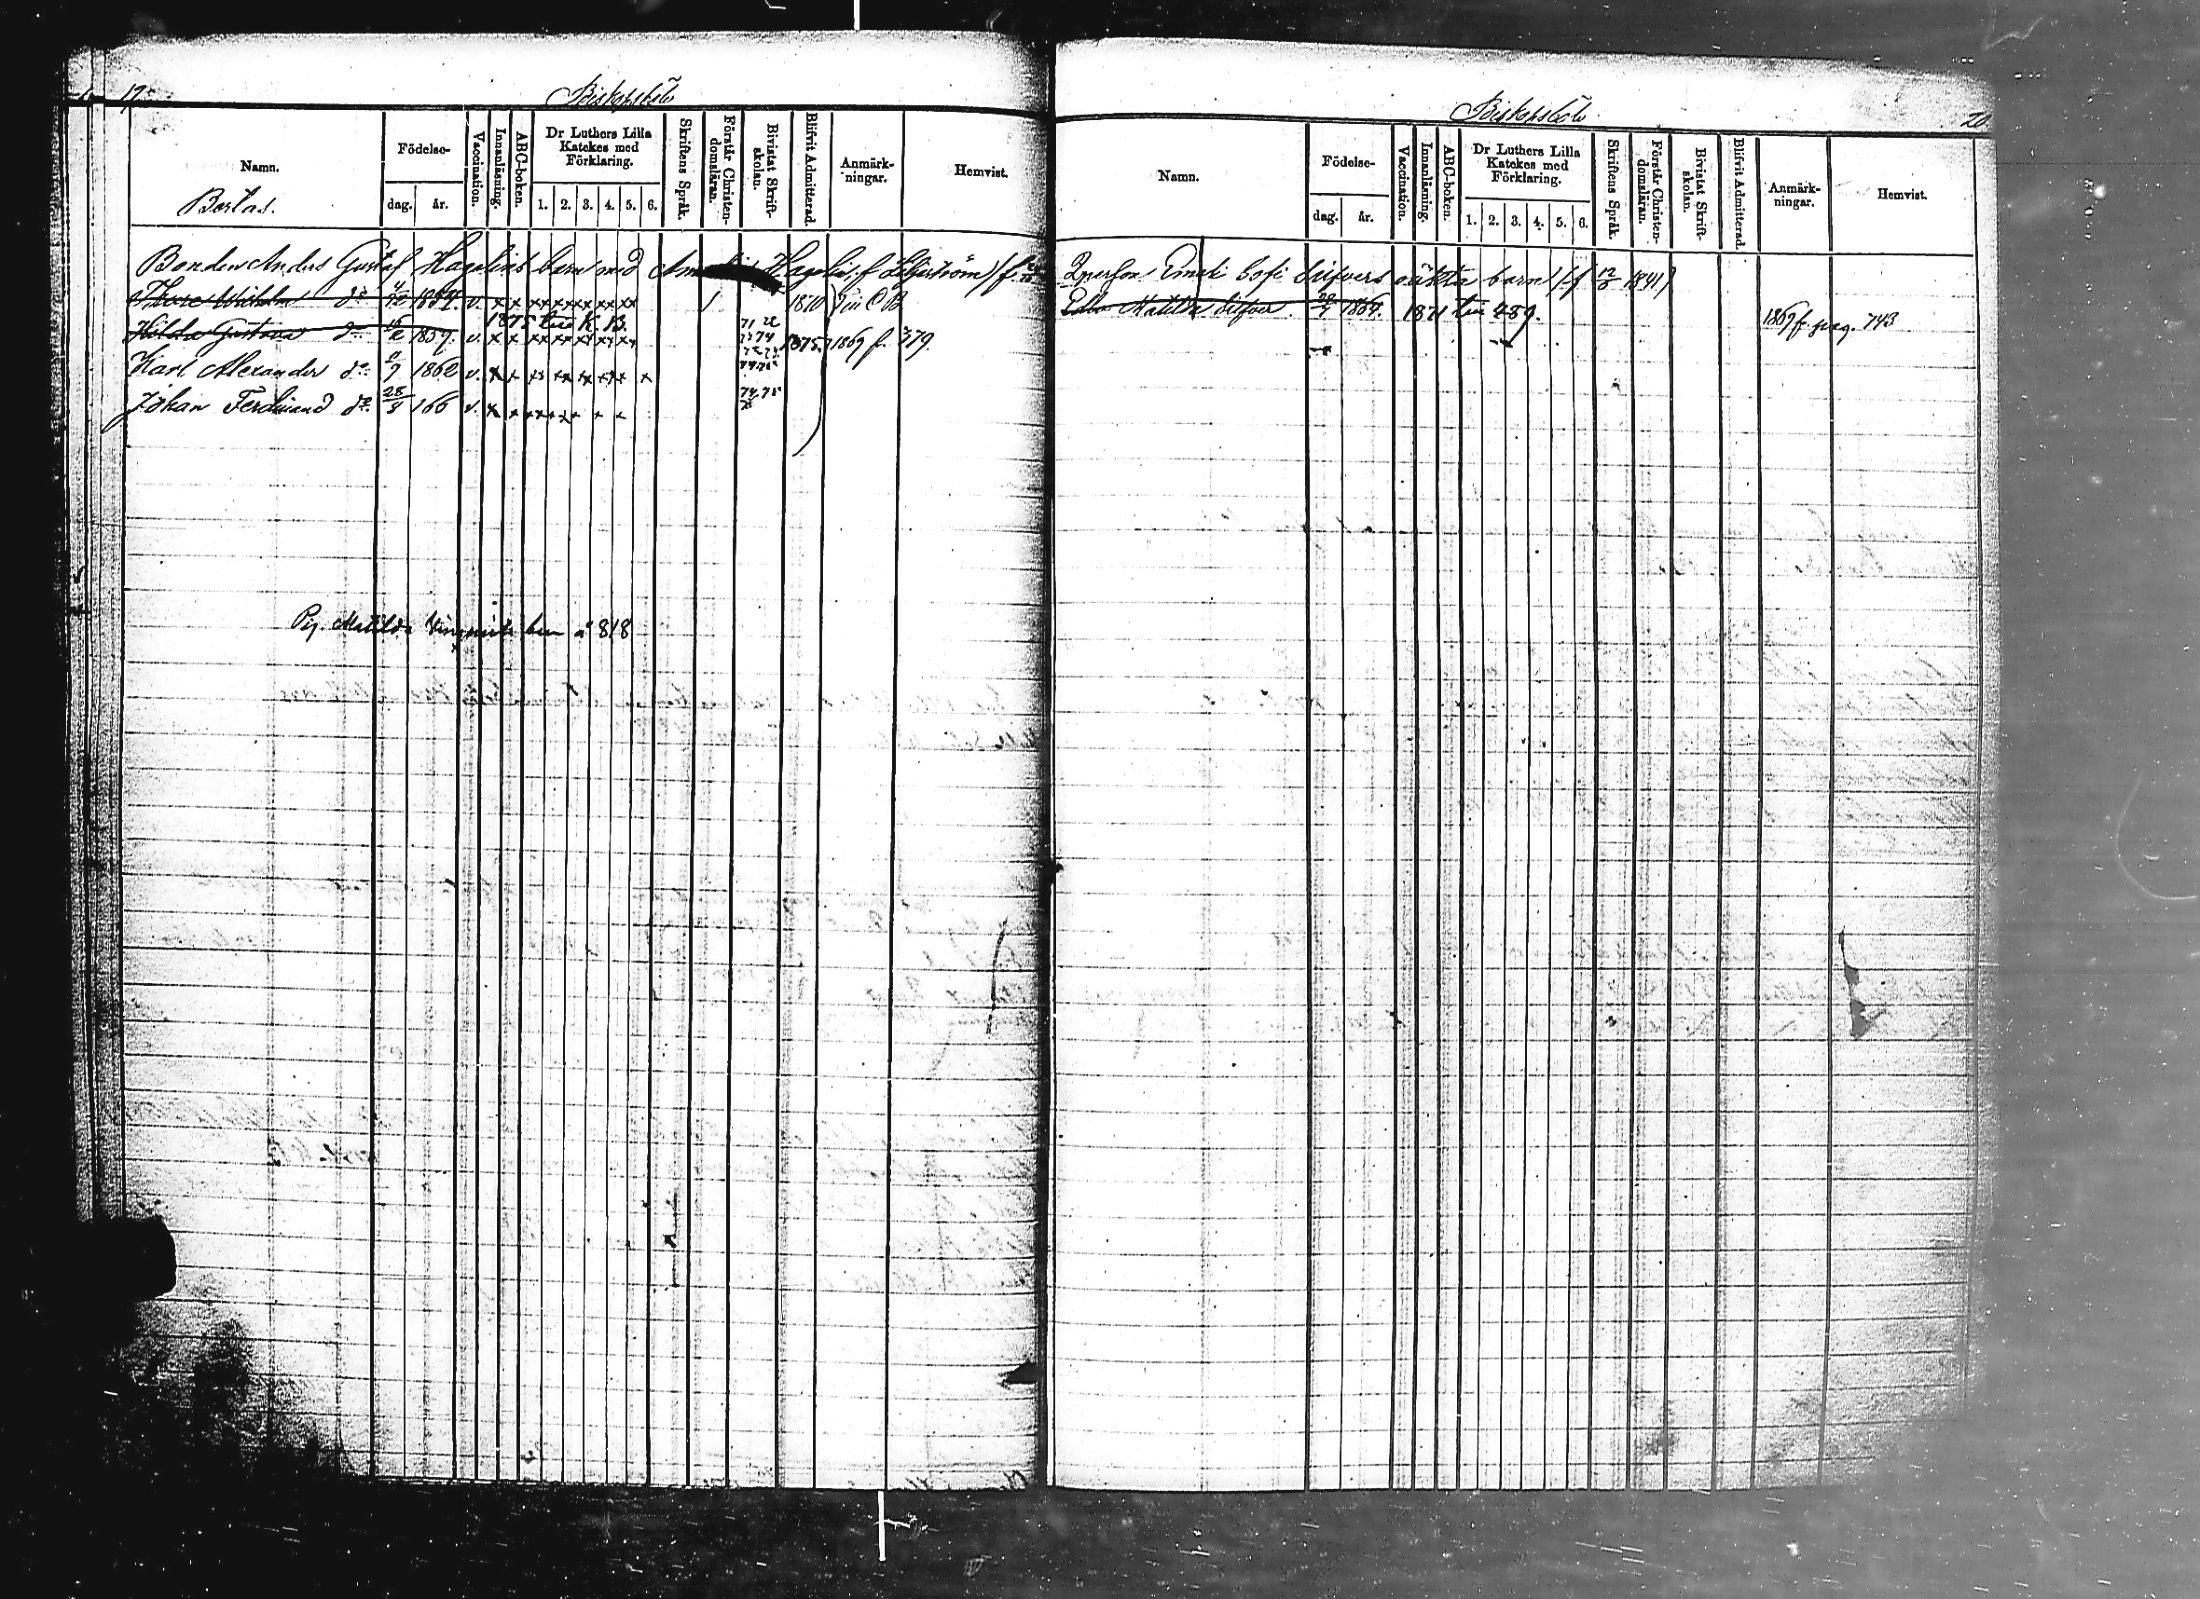 19.
Biskopsböle
Namn.
Födelse-
dag.
år.
Vaccination.
Innanläsning.
ABC-boken.
Dr Luthers Lilla
Katekes med
Förklaring.
1. 2. 3. 4. 5. 6.
Skriftens Språk.
Förstår Christen-
domsläran.
Bivistat Skrift-
skolan.
Blifvit Admitterad.
Anmärk-
ningar.
Hemvist.
Bertas.
Bonden Anders Gustaf Hagelins barn med Hagelin, f.
Wilhelm d:o v. x x x x x x x x x x 1 1870
1875 till K. B.
Hilda Gustava d:o 1859. v. x x x x x x x x x x 1875. 1869 f. 379.
Karl Alexander d:o 1862 v. x x x x x x x x x x
Johan Ferdinand d:o 28 166 v. x x x x x x x x
Pig. Matilda barn å 818
Biskopsböle
20.
Namn.
Födelse-
dag.
år.
Vaccination.
Innanläsning.
ABC-boken.
Dr Luthers Lilla
Katekes med
Förklaring.
1. 2. 3. 4. 5. 6.
Skriftens Språk.
Förstår Christen-
domsläran.
Bivistat Skrift-
skolan.
Blifvit Admitterad.
Anmärk-
ningar.
Hemvist.
Qperson Sofi Silfvers oäkta barn (f. 12 1841)
Matilda Silfver. 1864. 1871 till 289.
1869 f. pag. 743